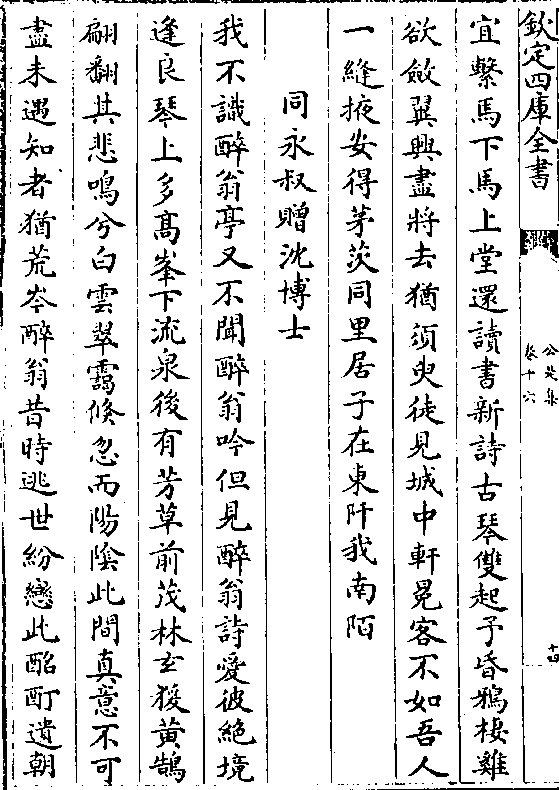 欽定四庫全書
公是集
卷十六
十四
宜繫馬下馬上堂還讀書新詩古琴雙起予昏鴉棲雞
欲斂翼興盡將去猶須臾徒見城中軒冕客不如吾人
一縫掖安得茅茨同里居子在東阡我南陌
同永叔贈沈博士
我不識醉翁亭又不聞醉翁吟但見醉翁詩愛彼絕境
逢良琴上多髙峯下流泉後有芳草前茂林玄猨黃鵠
翩翻其悲鳴兮白雲翠靄倏忽而陽陰此間真意不可
盡未遇知者猶荒岑醉翁昔時逃世紛戀此酩酊遺朝